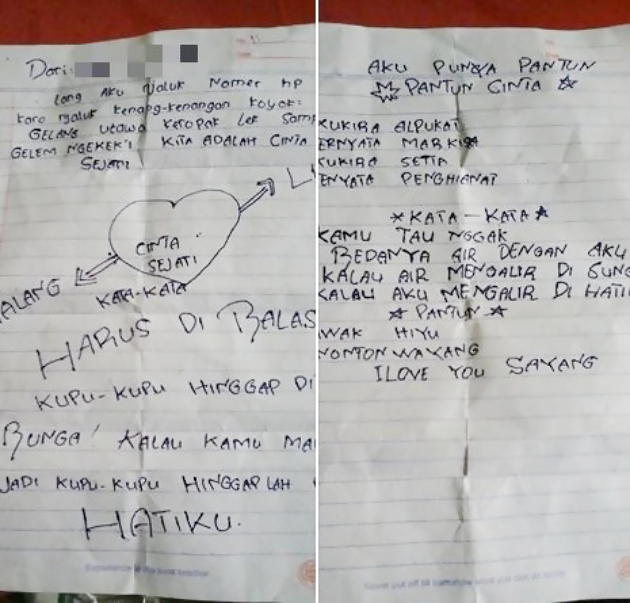 Dari:
Long AKU NJALUK Nomer HP
karo NJALUK kenang-kenangan koyok:
GELANG utawa ketopak Lek Samp
GELEM NGEKEK'I KITA ADALAH CINTA
SEJATI
CINTA
SEJATI
ALANG
KATA-KATA
HARUS DI BALAS
KUPU-KUPU HINGGAP DI
BUNGA! KALAU KAMU MA
JADI KUPU-KUPU HINGGAP LAH
HATIKU.
AKU PUNYA PANTUN
PANTUN CINTA
KUKIRA ALPUKAT
ERNYATA MARKISA
KUKIRA SETIA
ENYATA PENGHIANAT
KATA-KATA
KAMU TAU NGGAK
BEDANYA AIR DENGAN AKU
KALAU AIR MENGALIR DI SUNG
KALAU AKU MENGALIR DI HATI
PANTUN
AWAK HIYU
NONTON WAYANG
I LOVE YOU SAYANG